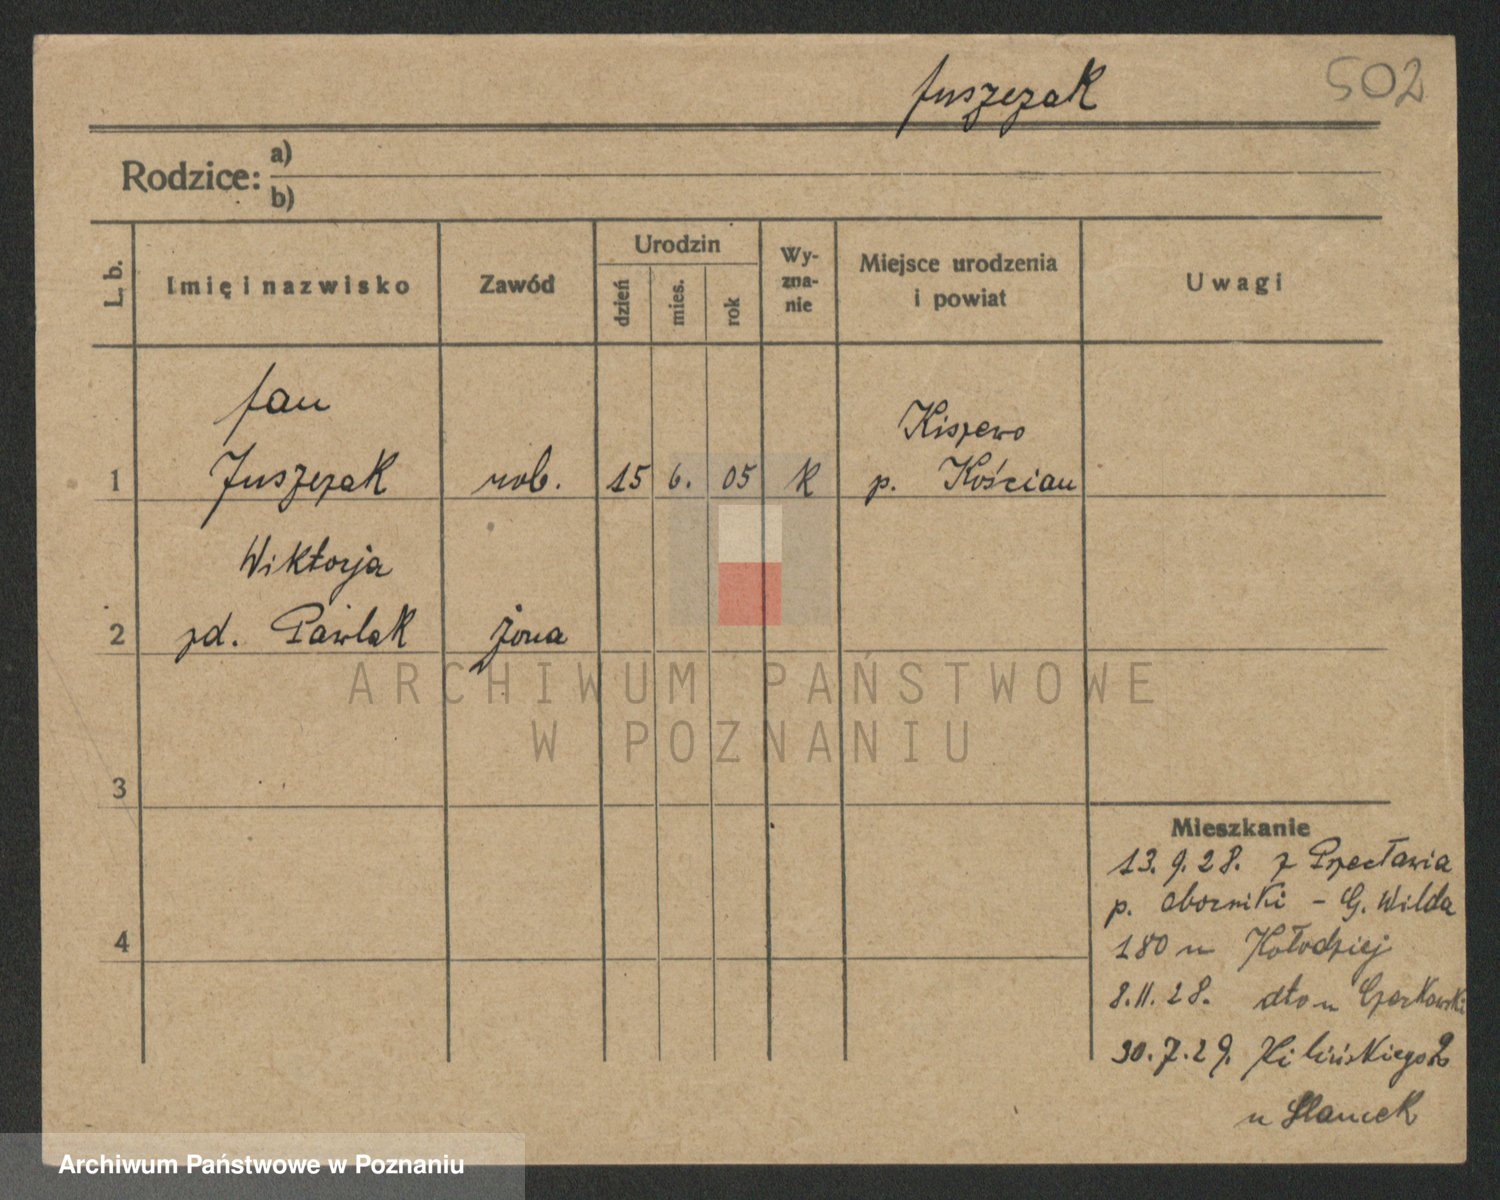 Juszczak
502
Rodzice: a)
b)
L. b.
Imię i nazwisko
Zawód
Urodzin
dzień
mies.
rok
Wy-
zna-
nie
Miejsce urodzenia
i powiat
Uwagi
Jan
Kiszewo
1 Juszczak rob. 15 6. 05 k p. Kościan
Wiktorja
2 zd. Pawlak żona
ARCHIWUM PAŃSTWOWE
W POZNANIU
3
Mieszkanie
13.9.28. z Przecławia
p. Oborniki - G. Wilda
4
180 u Kołodziej
8.11.28. dto u Czarkowski
30.7.29. Kilińskiego
u
Archiwum Państwowe w Poznaniu